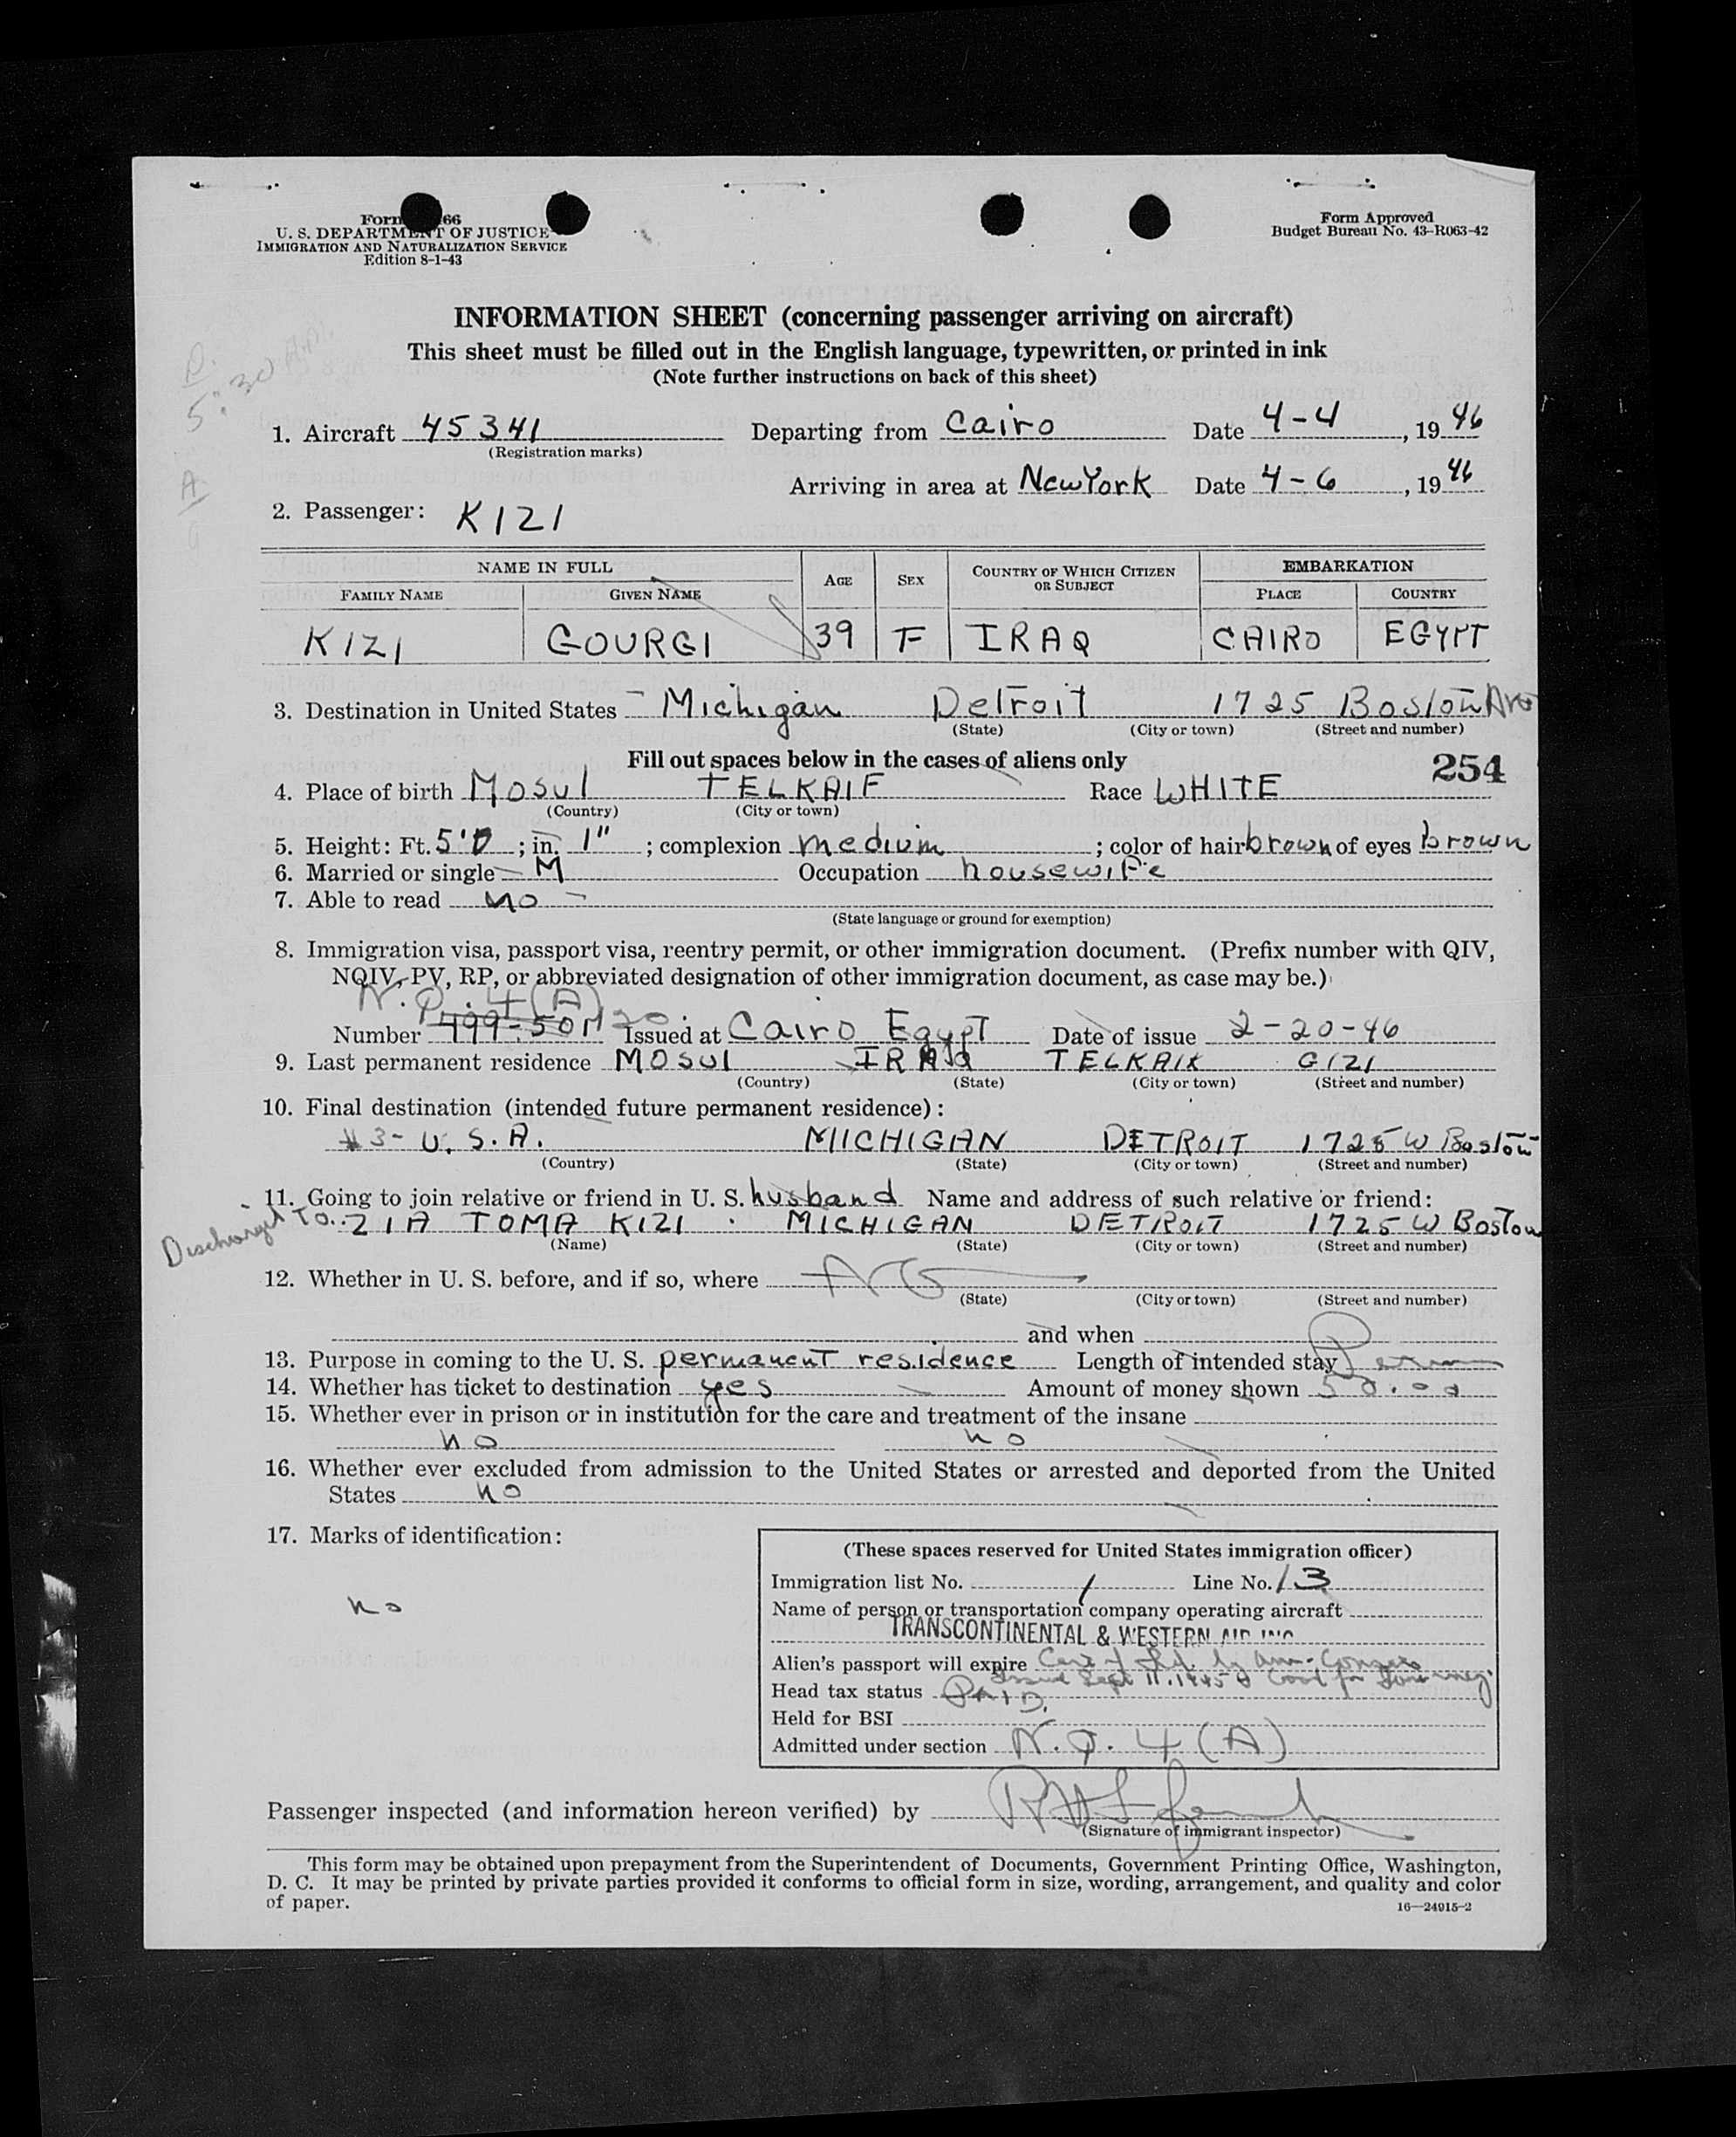 Form 66
U. S. DEPARTMENT OF JUSTICE
IMMIGRATION AND NATURALIZATION SERVICE
Edition 8-1-43
Form Approved
Budget Bureau No. 43-R063-42
INFORMATION SHEET (concerning passenger arriving on aircraft)
This sheet must be filled out in the English language, typewritten, or printed in ink
(Note further instructions on back of this sheet)
5:30
1. Aircraft 45341 Departing from Cairo Date 4-4, 1946
(Registration marks)
Arriving in area at New York Date 4-6, 1946
2. Passenger: KIZI
NAME IN FULL AGE SEX COUNTRY OF WHICH CITIZEN OR SUBJECT EMBARKATION
FAMILY NAME GIVEN NAME PLACE COUNTRY
KIZI GOURGI 39 F IRAQ CAIRO EGYPT
3. Destination in United States Michigan Detroit 1725 Boston Ave
(State) (City or town) (Street and number)
Fill out spaces below in the cases of aliens only 254
4. Place of birth Mosul TELKAIF Race WHITE
(Country) (City or town)
5. Height: Ft. 5'0; in. 1"; complexion medium; color of hair brown of eyes brown
6. Married or single M Occupation housewife
7. Able to read no
(State language or ground for exemption)
8. Immigration visa, passport visa, reentry permit, or other immigration document. (Prefix number with QIV,
NQIV, PV, RP, or abbreviated designation of other immigration document, as case may be.)
N.Q. 4(A)
Number Issued at Cairo Egypt Date of issue 2-20-46
9. Last permanent residence MOSUL IRAQ TELKAIK GIZI
(Country) (State) (City or town) (Street and number)
10. Final destination (intended future permanent residence):
#3- U.S.A. MICHIGAN DETROIT 1725 W Boston
(Country) (State) (City or town) (Street and number)
11. Going to join relative or friend in U. S. husband Name and address of such relative or friend:
Discharged To.. ZIA TOMA KIZI . MICHIGAN DETROIT 1725 W Boston
(Name) (State) (City or town) (Street and number)
12. Whether in U. S. before, and if so, where No
(State) (City or town) (Street and number)
and when
13. Purpose in coming to the U. S. permanent residence Length of intended stay Perm
14. Whether has ticket to destination yes Amount of money shown 50.00
15. Whether ever in prison or in institution for the care and treatment of the insane
no no
16. Whether ever excluded from admission to the United States or arrested and deported from the United
States no
17. Marks of identification:
no
(These spaces reserved for United States immigration officer)
Immigration list No. 1 Line No. 13
Name of person or transportation company operating aircraft
TRANSCONTINENTAL & WESTERN AIR INC
Alien's passport will expire
Issued Sept 11.1945
Head tax status PAID.
Held for BSI
Admitted under section N.Q. 4(A)
Passenger inspected (and information hereon verified) by
(Signature of immigrant inspector)
This form may be obtained upon prepayment from the Superintendent of Documents, Government Printing Office, Washington,
D. C. It may be printed by private parties provided it conforms to official form in size, wording, arrangement, and quality and color
of paper.
16—24915-2